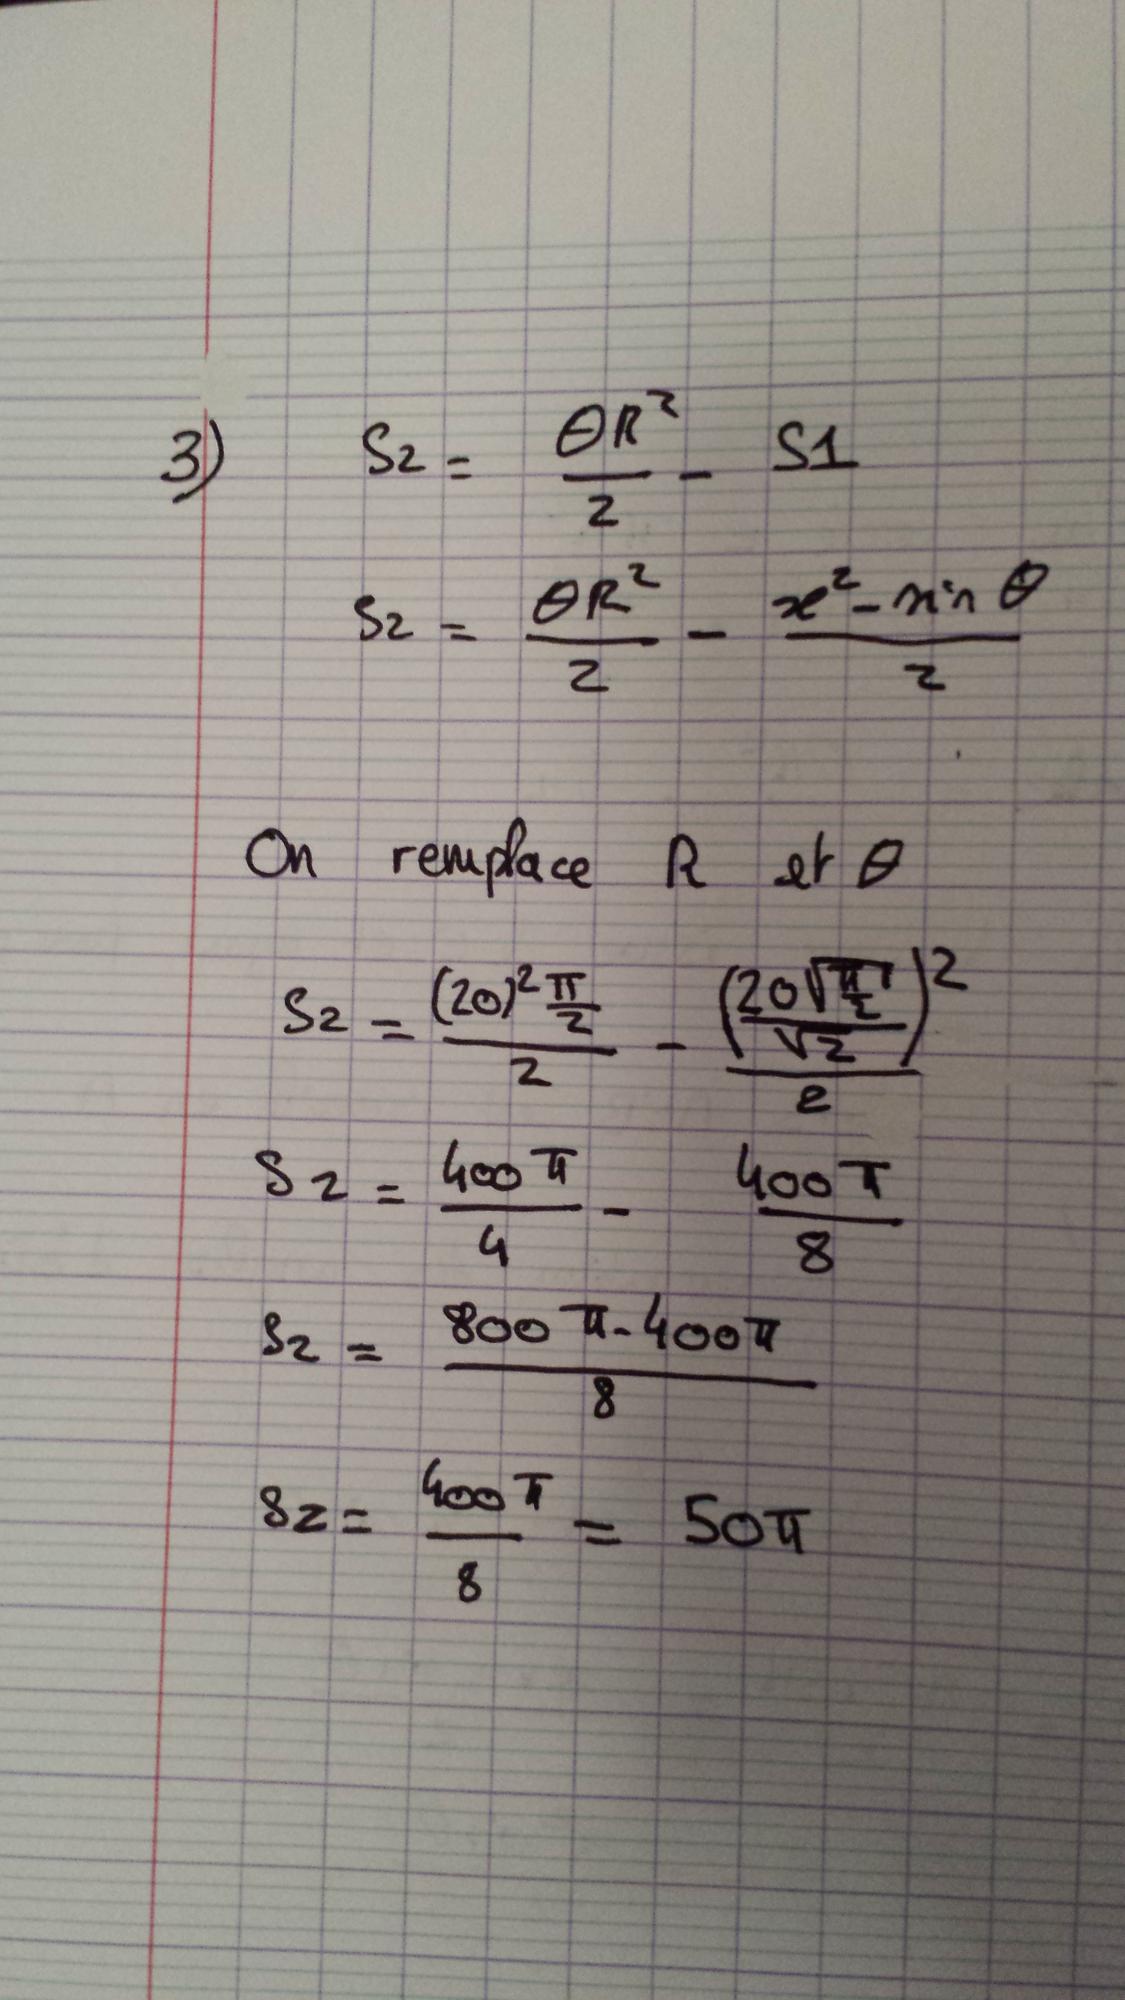 3) S2 = θR²/2 - S1
S2 = θR²/2 - x² - sin θ/2
On remplace R et θ
S2 = (20)² π/2 / 2 - (20√(π/2) / √2)² / 2
S2 = 400π/4 - 400π/8
S2 = 800π - 400π / 8
S2 = 400π/8 = 50π